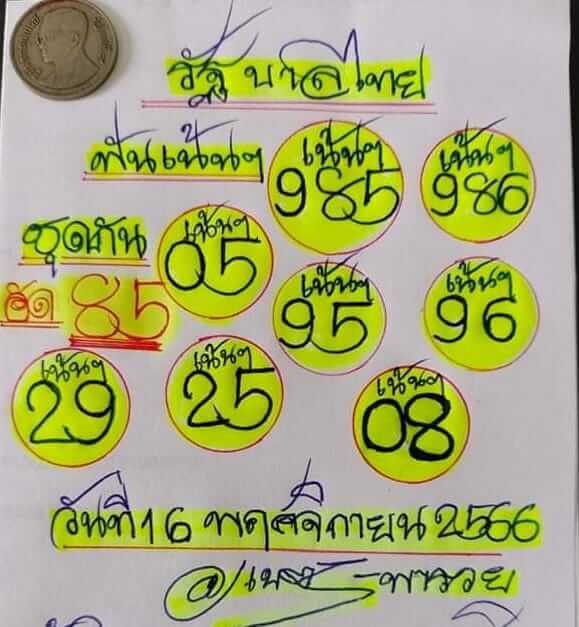 รัฐบาลไทย
ฟันเน้นๆ
เน้นๆ
985
เน้นๆ
986
ชุดกัน
เน้นๆ
05
อัด 85
เน้นๆ
95
เน้นๆ
96
เน้นๆ
29
เน้นๆ
25
เน้นๆ
08
วันที่ 16 พฤศจิกายน 2566